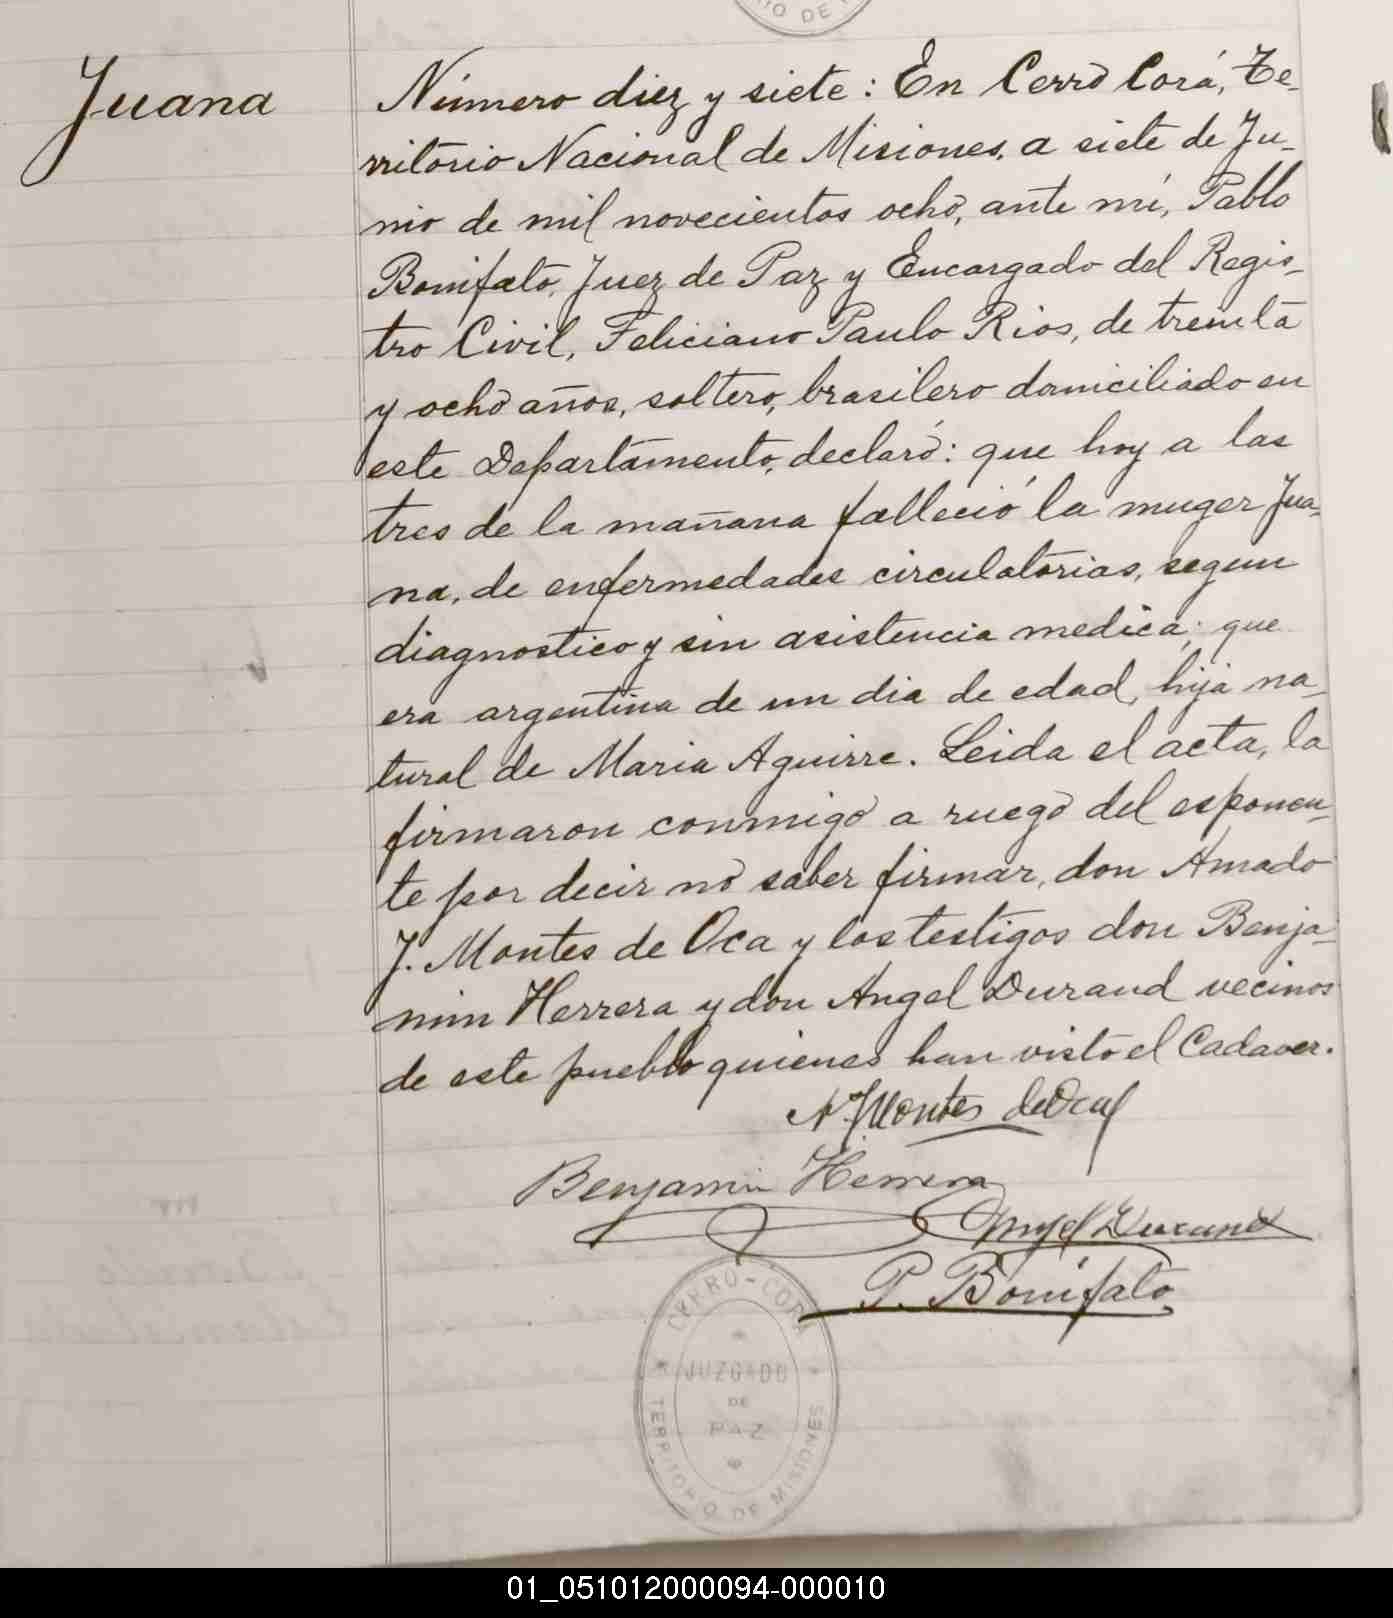 RIO DE
Juana
Número diez y siete: En Cerro Corá, Te-
rritorio Nacional de Misiones, a siete de Ju-
nio de mil novecientos ocho, ante mí, Pablo
Bonifato, Juez de Paz y Encargado del Regis-
tro Civil, Feliciano Paulo Rios, de treinta
y ocho años, soltero, brasilero domiciliado en
este Departamento, declaró: que hoy a las
tres de la mañana falleció la muger Jua-
na, de enfermedades circulatorias, segun
diagnostico y sin asistencia medica; que
era argentina de un dia de edad, hija na-
tural de Maria Aguirre. Leida el acta, la
firmaron conmigo a ruego del esponen-
te por decir no saber firmar, don Amado
J. Montes de Oca y los testigos don Benja-
min Herrera y don Angel Durand vecinos
de este pueblo quienes han visto el Cadaver.
A. J. Montes de Oca
Benjamin Herrera
Angel Durand
P. Bonifato
CERRO-CORA
JUZGADO
DE
PAZ
TERRITORIO DE MISIONES
01_051012000094-000010